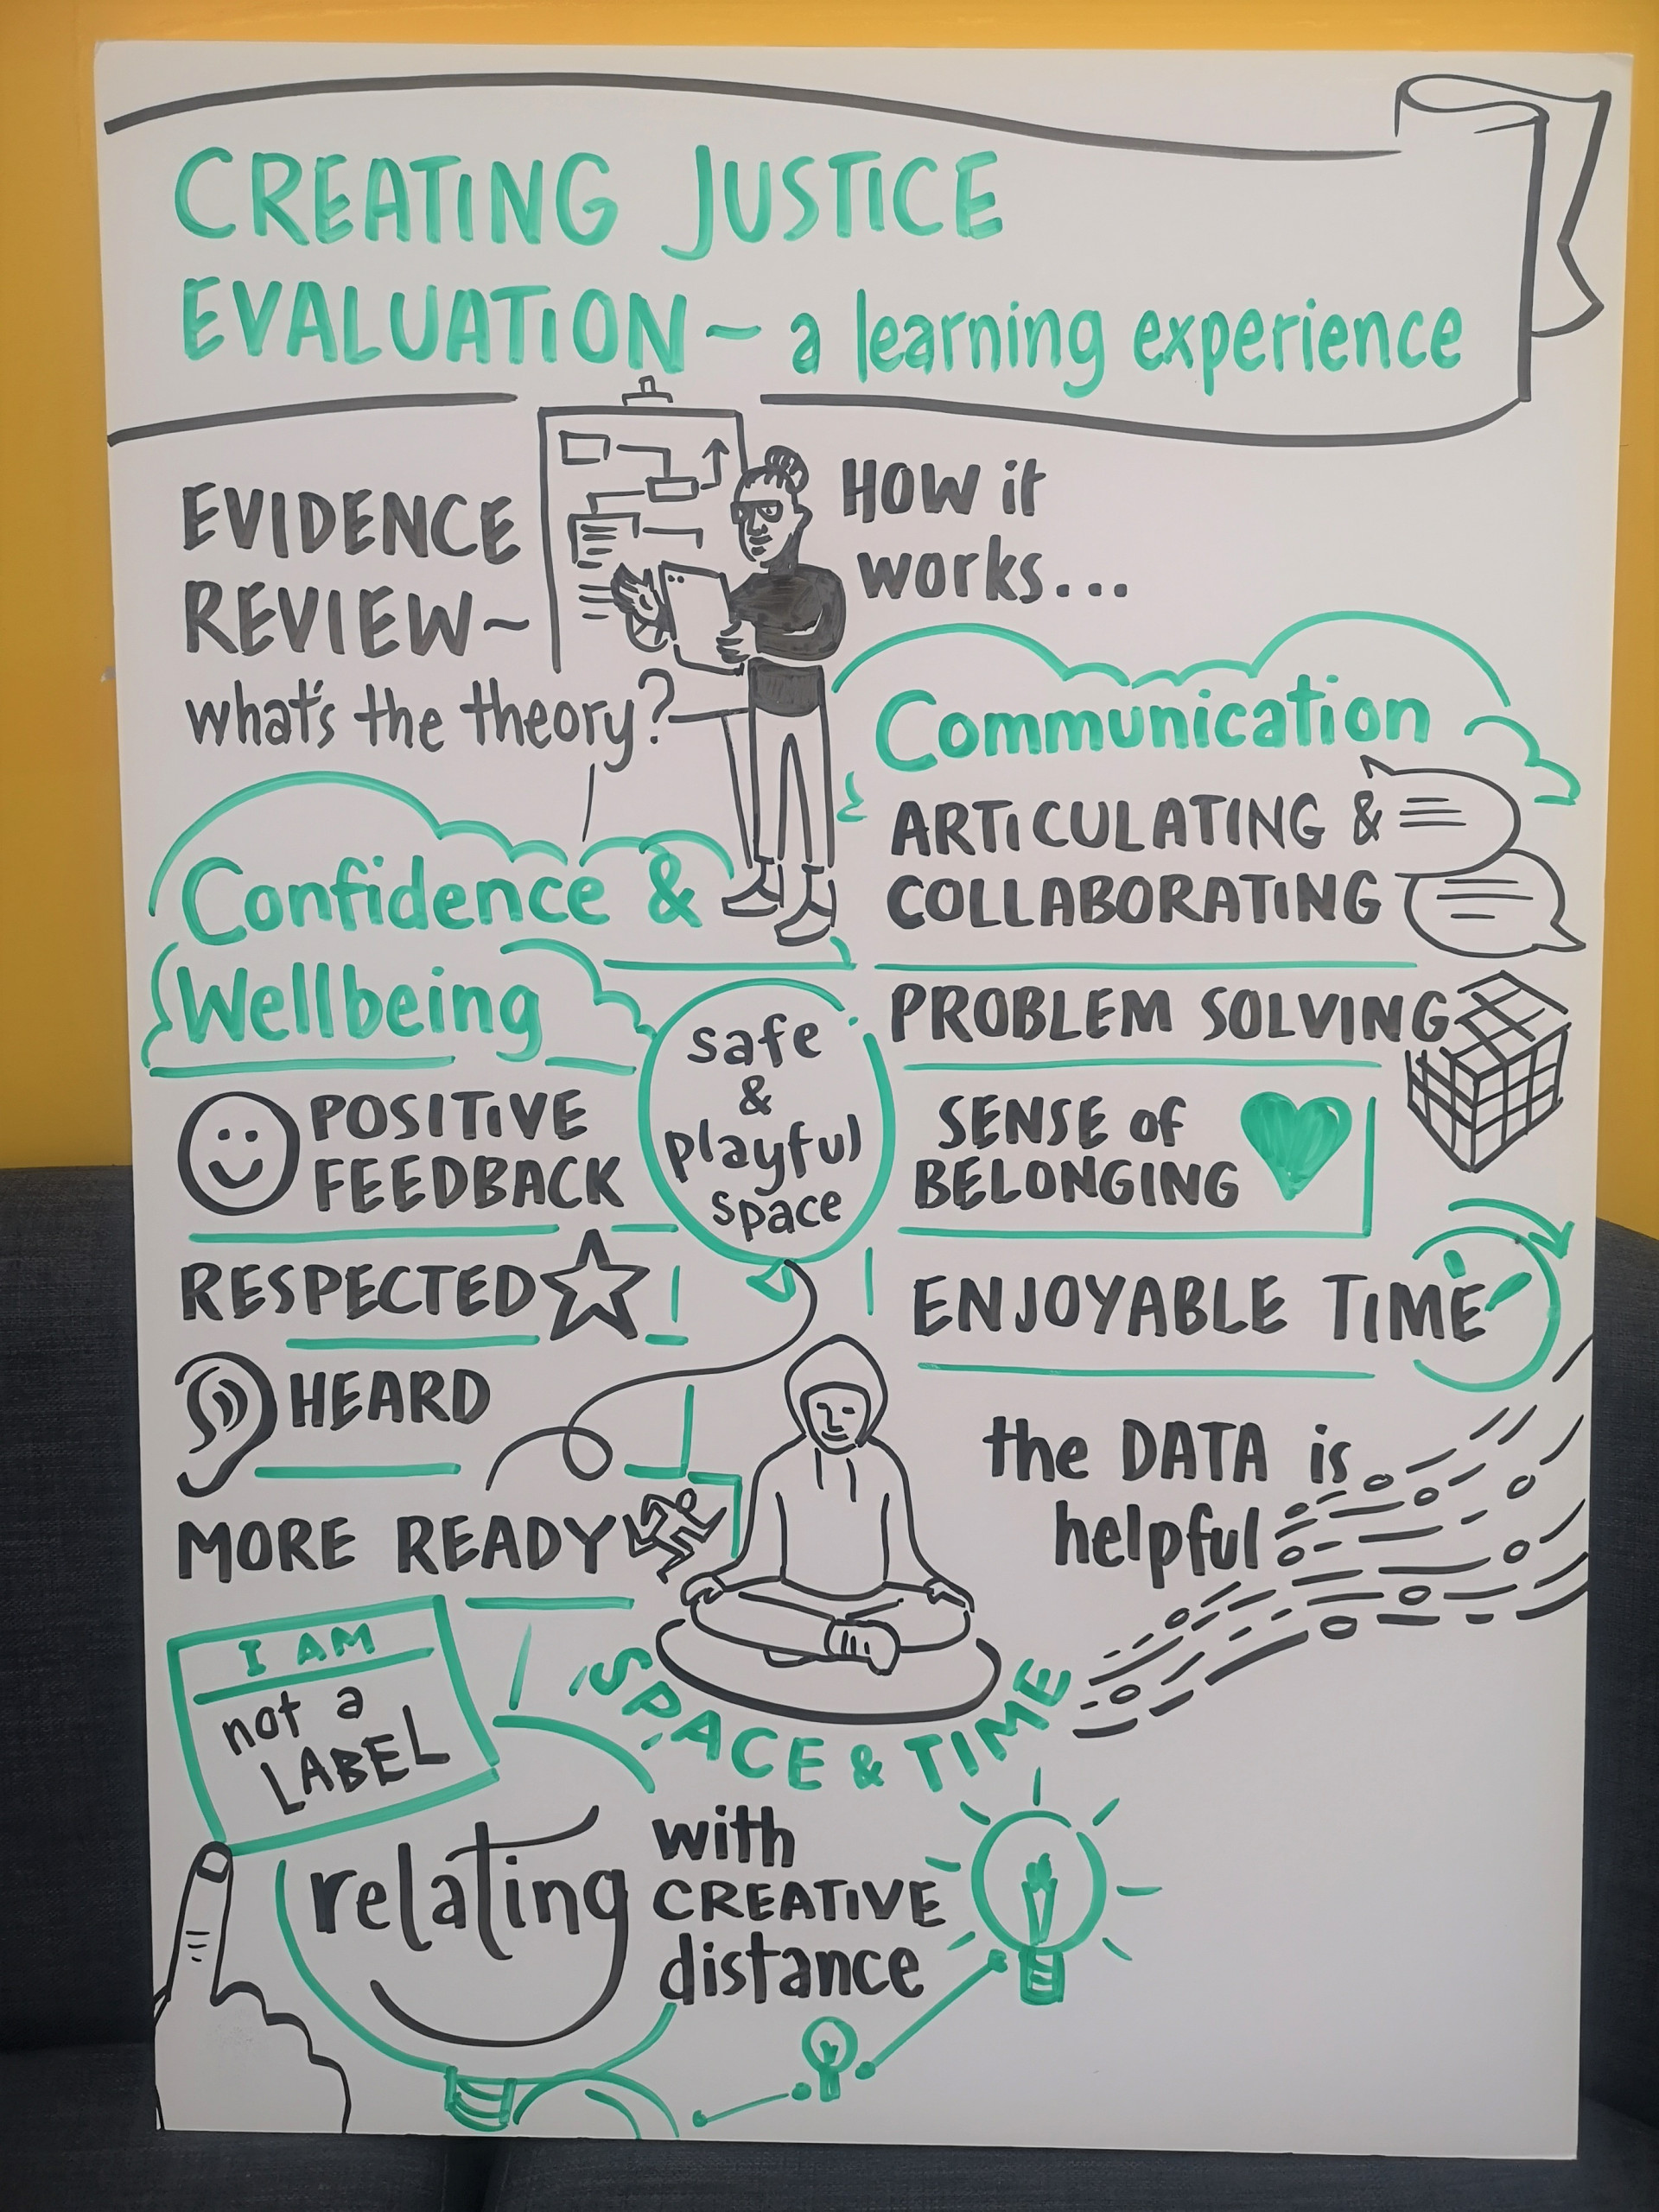 CREATING JUSTICE
EVALUATION ~ a learning experience
EVIDENCE
REVIEW ~
what's the theory?
HOW it
works...
Confidence &
Wellbeing
POSITIVE
FEEDBACK
RESPECTED
HEARD
MORE READY
safe
&
playful
space
Communication
ARTICULATING &
COLLABORATING
PROBLEM SOLVING
SENSE of
BELONGING
ENJOYABLE TIME
the DATA is
helpful
SPACE & TIME
I AM
not a
LABEL
relating
with
CREATIVE
distance